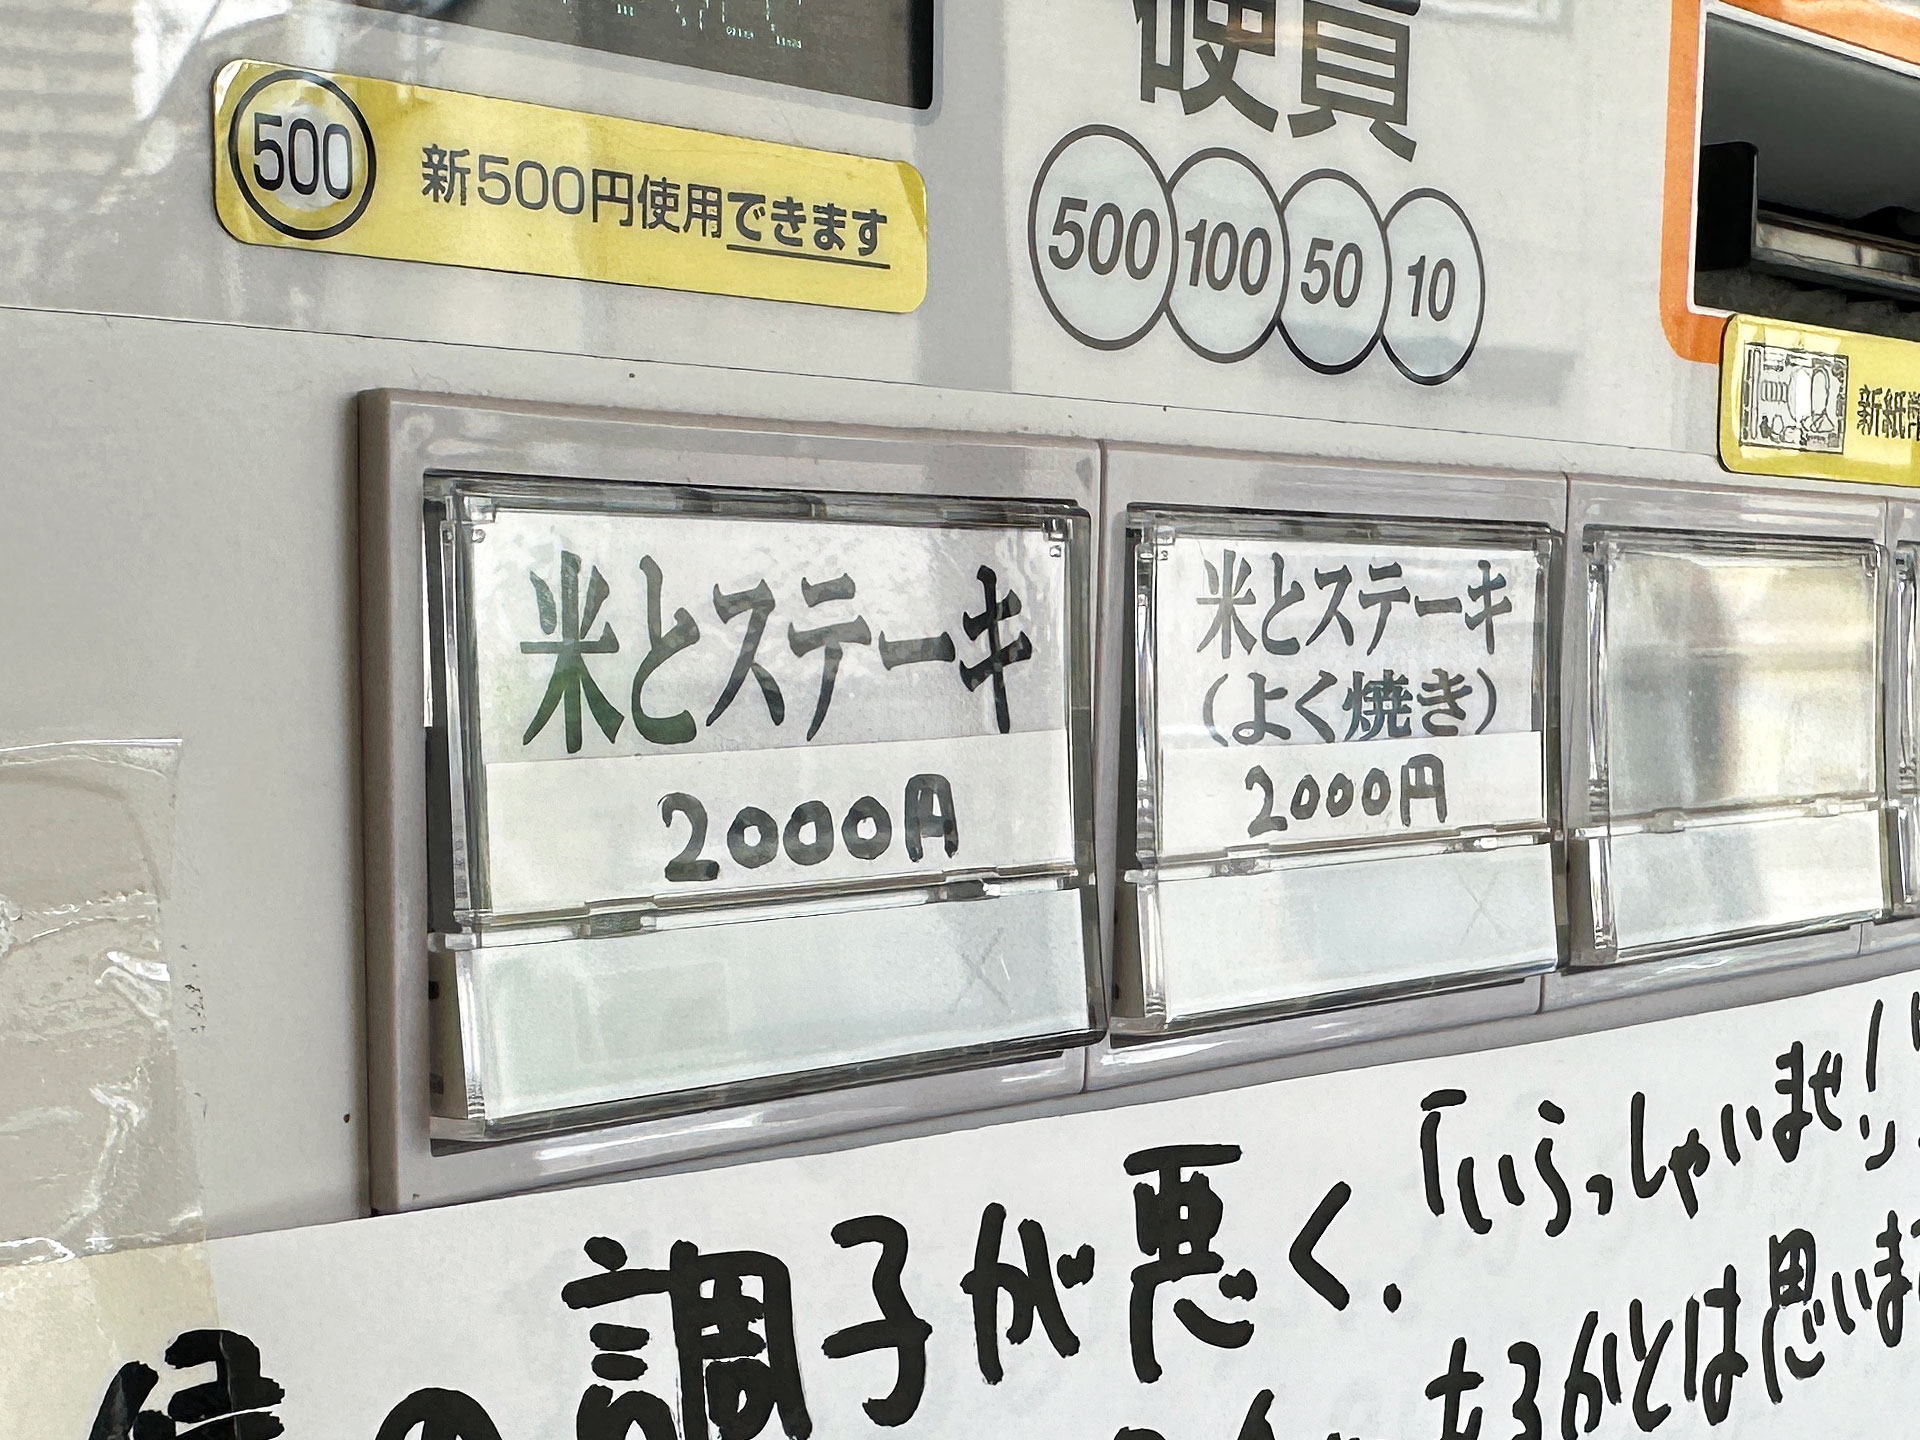 500 新500円使用できます
硬貨
500 100 50 10
新紙幣
米とステーキ
2000円
米とステーキ
(よく焼き)
2000円
「いらっしゃいませ!
調子が悪く、
あるかとは思います